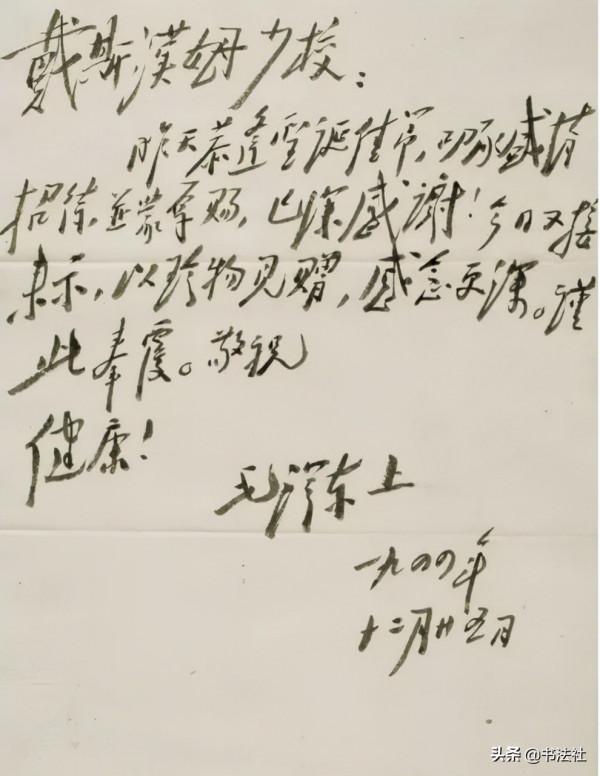 戴斯漢姆少校：
昨天恭逢聖誕佳节，叨承盛情
招待，並蒙厚赐，已深感谢！今日又接
来示，以珍物见赠，感念更深。谨
此奉覆。敬祝
健康！
毛泽东上
一九四四年
十二月廿五日
头条 @书法社